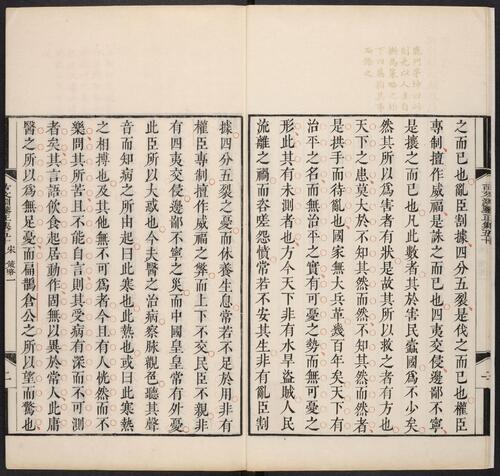 之而已也亂臣割據四分五裂是伐之而已也權臣
專制擅作威福是誅之而已也四夷交侵邊鄙不寧
是攘之而已也凡此數者其於害民蠹國爲不少矣
然其所以爲害者有狀是故其所以救之者有方也
天下之患莫大於不知其然而然不知其然而然者
是拱手而待亂也國家無大兵革幾百年矣天下有
治平之名而無治平之實有可憂之勢而無可憂之
形此其有未測者也方今天下非有水旱盜賊人民
流離之禍而咨嗟怨憤常若不安其生非有亂臣割
據四分五裂之憂而休養生息常若不足於用非有
權臣專制擅作威福之弊而上下不交民臣不親非
有四夷交侵邊鄙不寧之災而中國皇皇常有外憂
此臣所以大或也今夫醫之治病察脈觀色聽其聲
音而知病之所由起曰此寒也此熱也或曰此寒熱
之相搏也及其他無不可爲者今且有人恍然而不
樂問其所苦且不能自言則其受病有深而不可測
者矣其言語飲食起居動作固無以異於常人此庸
醫之所以爲無足憂而扁鵲倉公之所以望而驚也